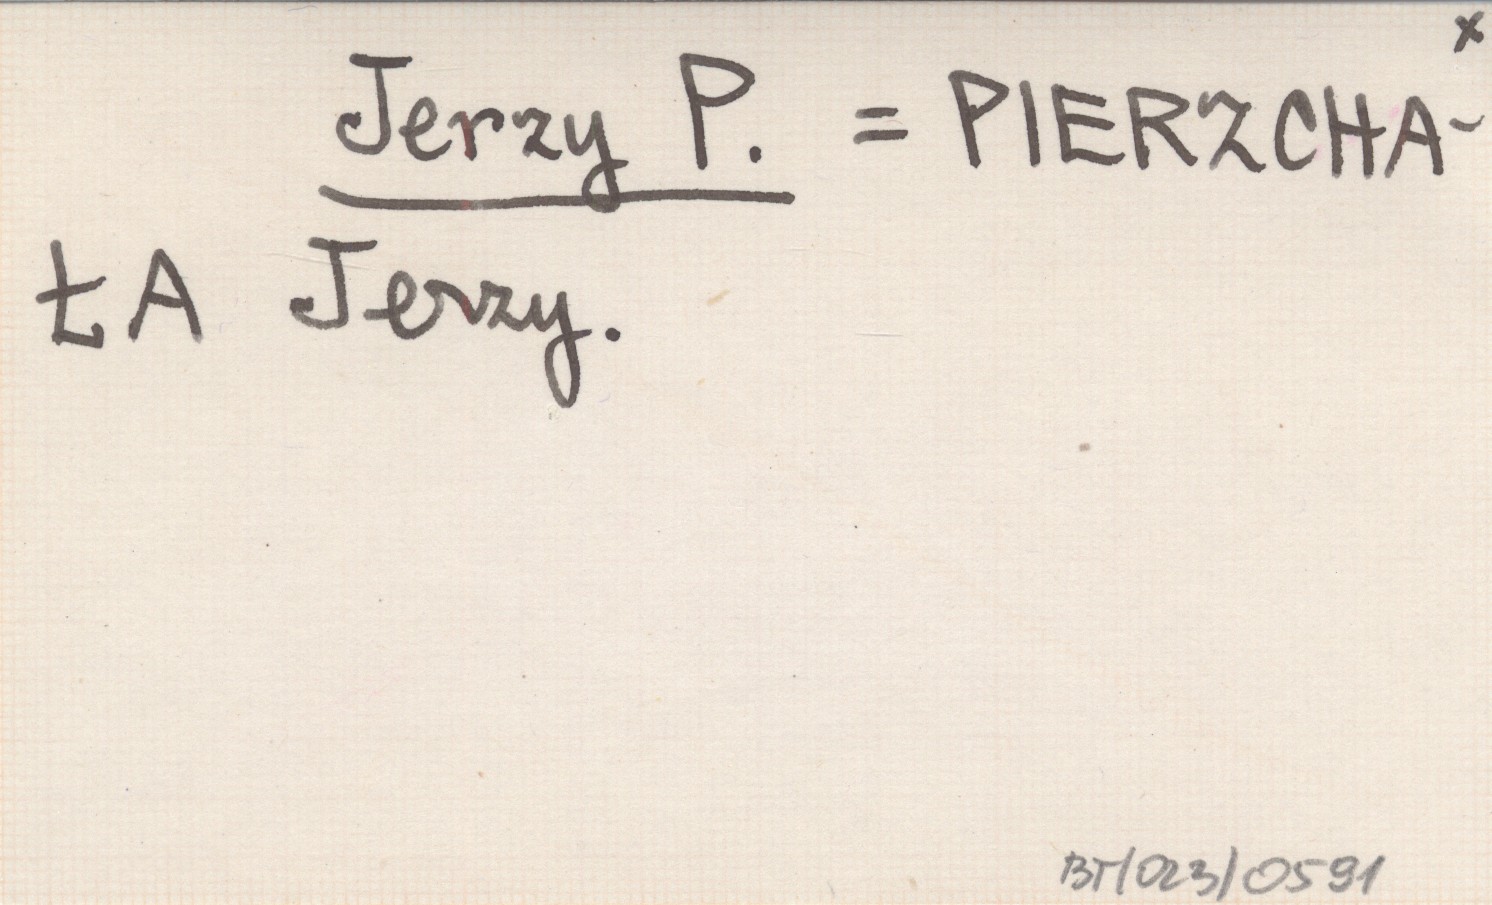 x
Jerzy P. = PIERZCHA-
ŁA Jerzy.
BT/023/0591